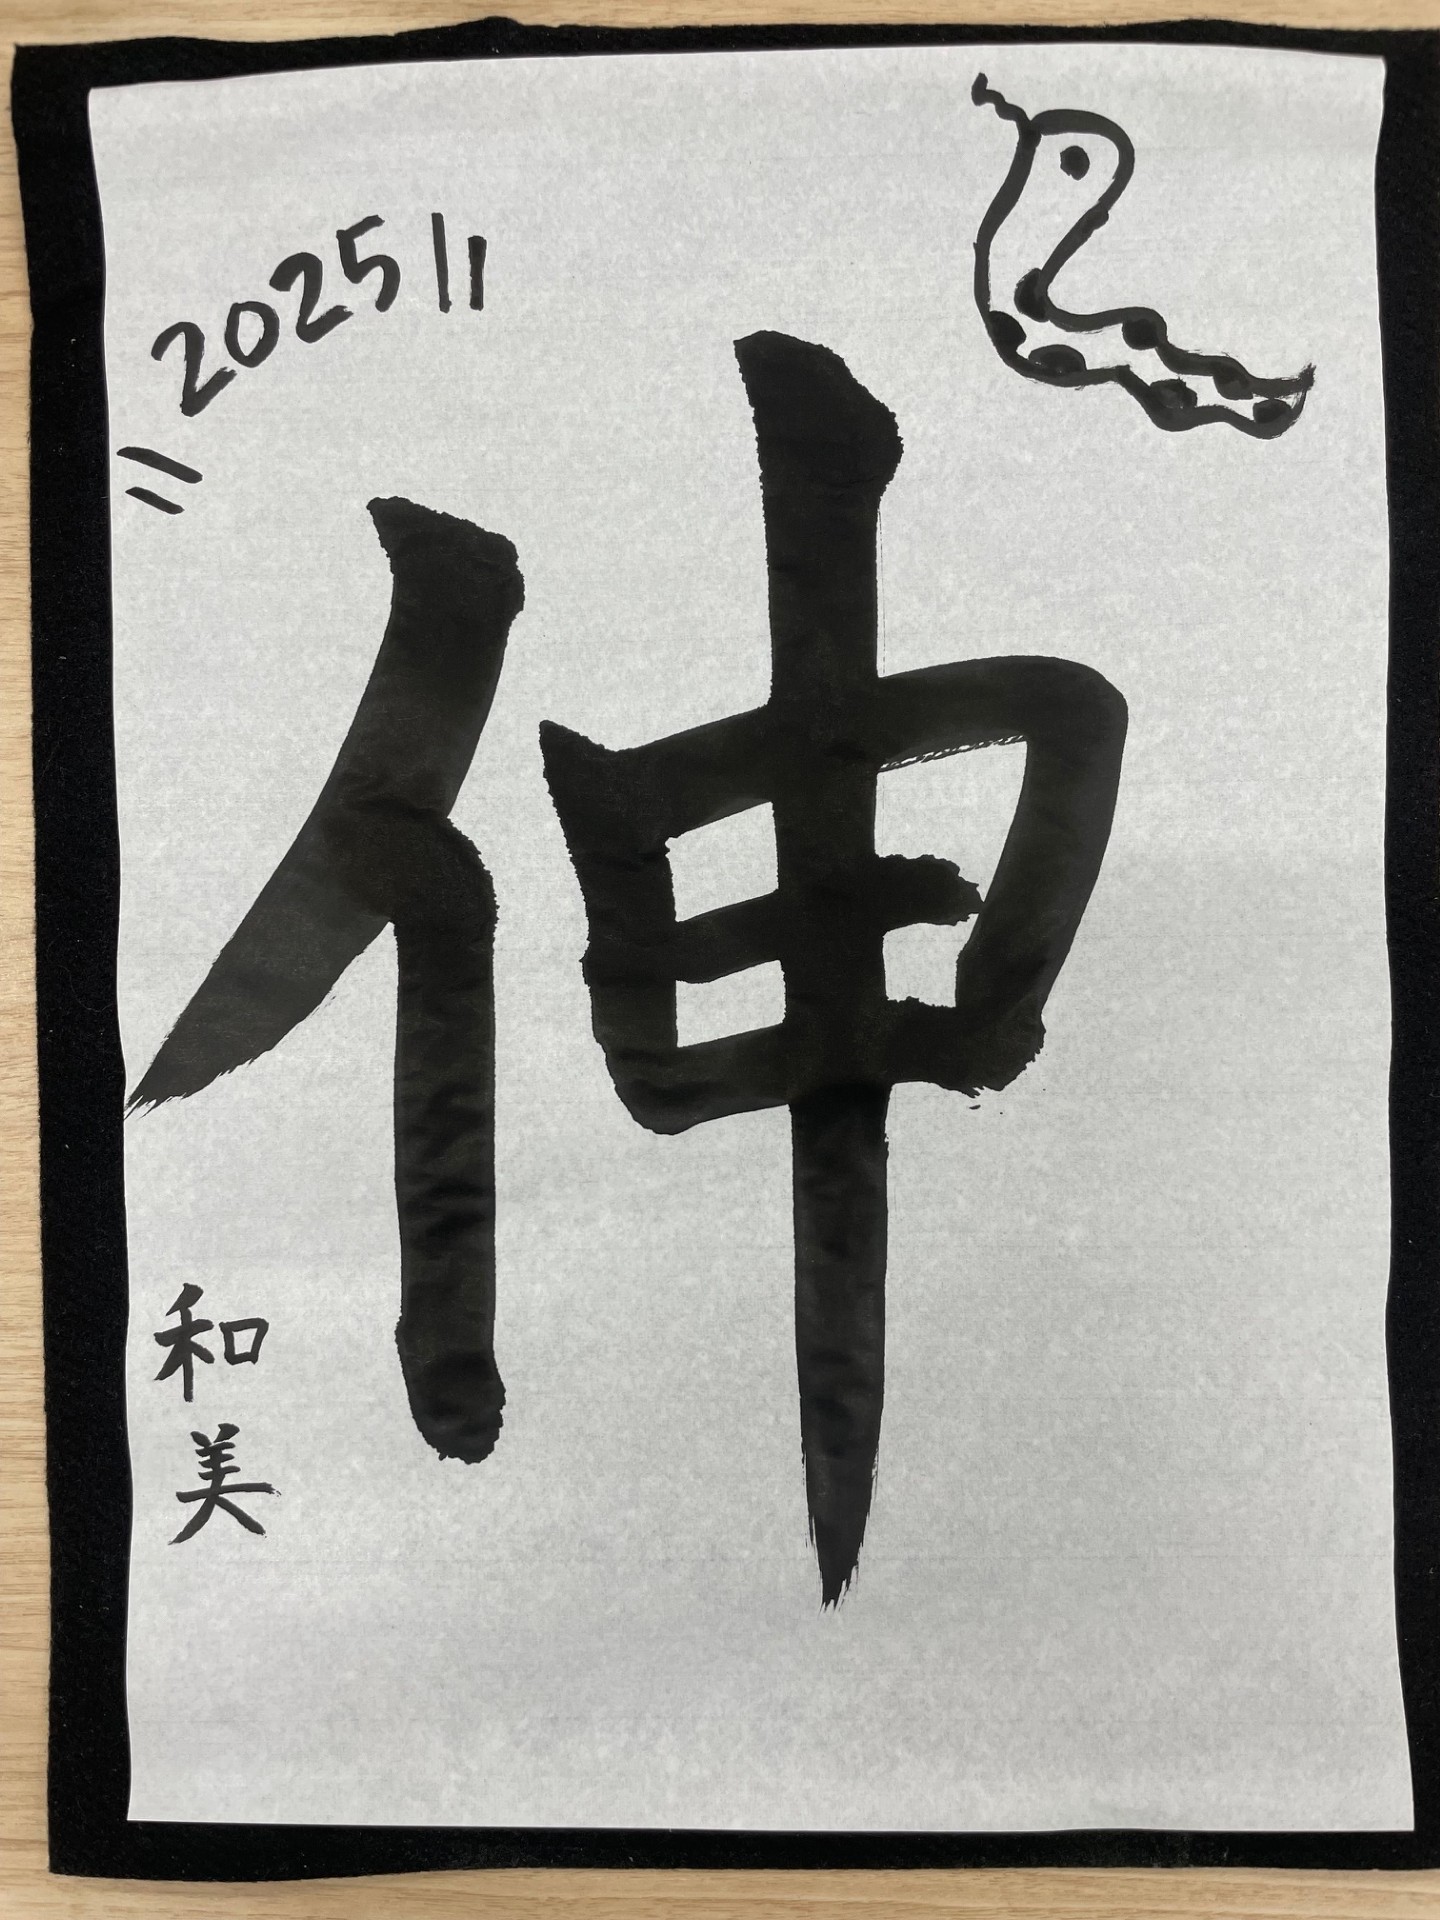 2025
伸
和美